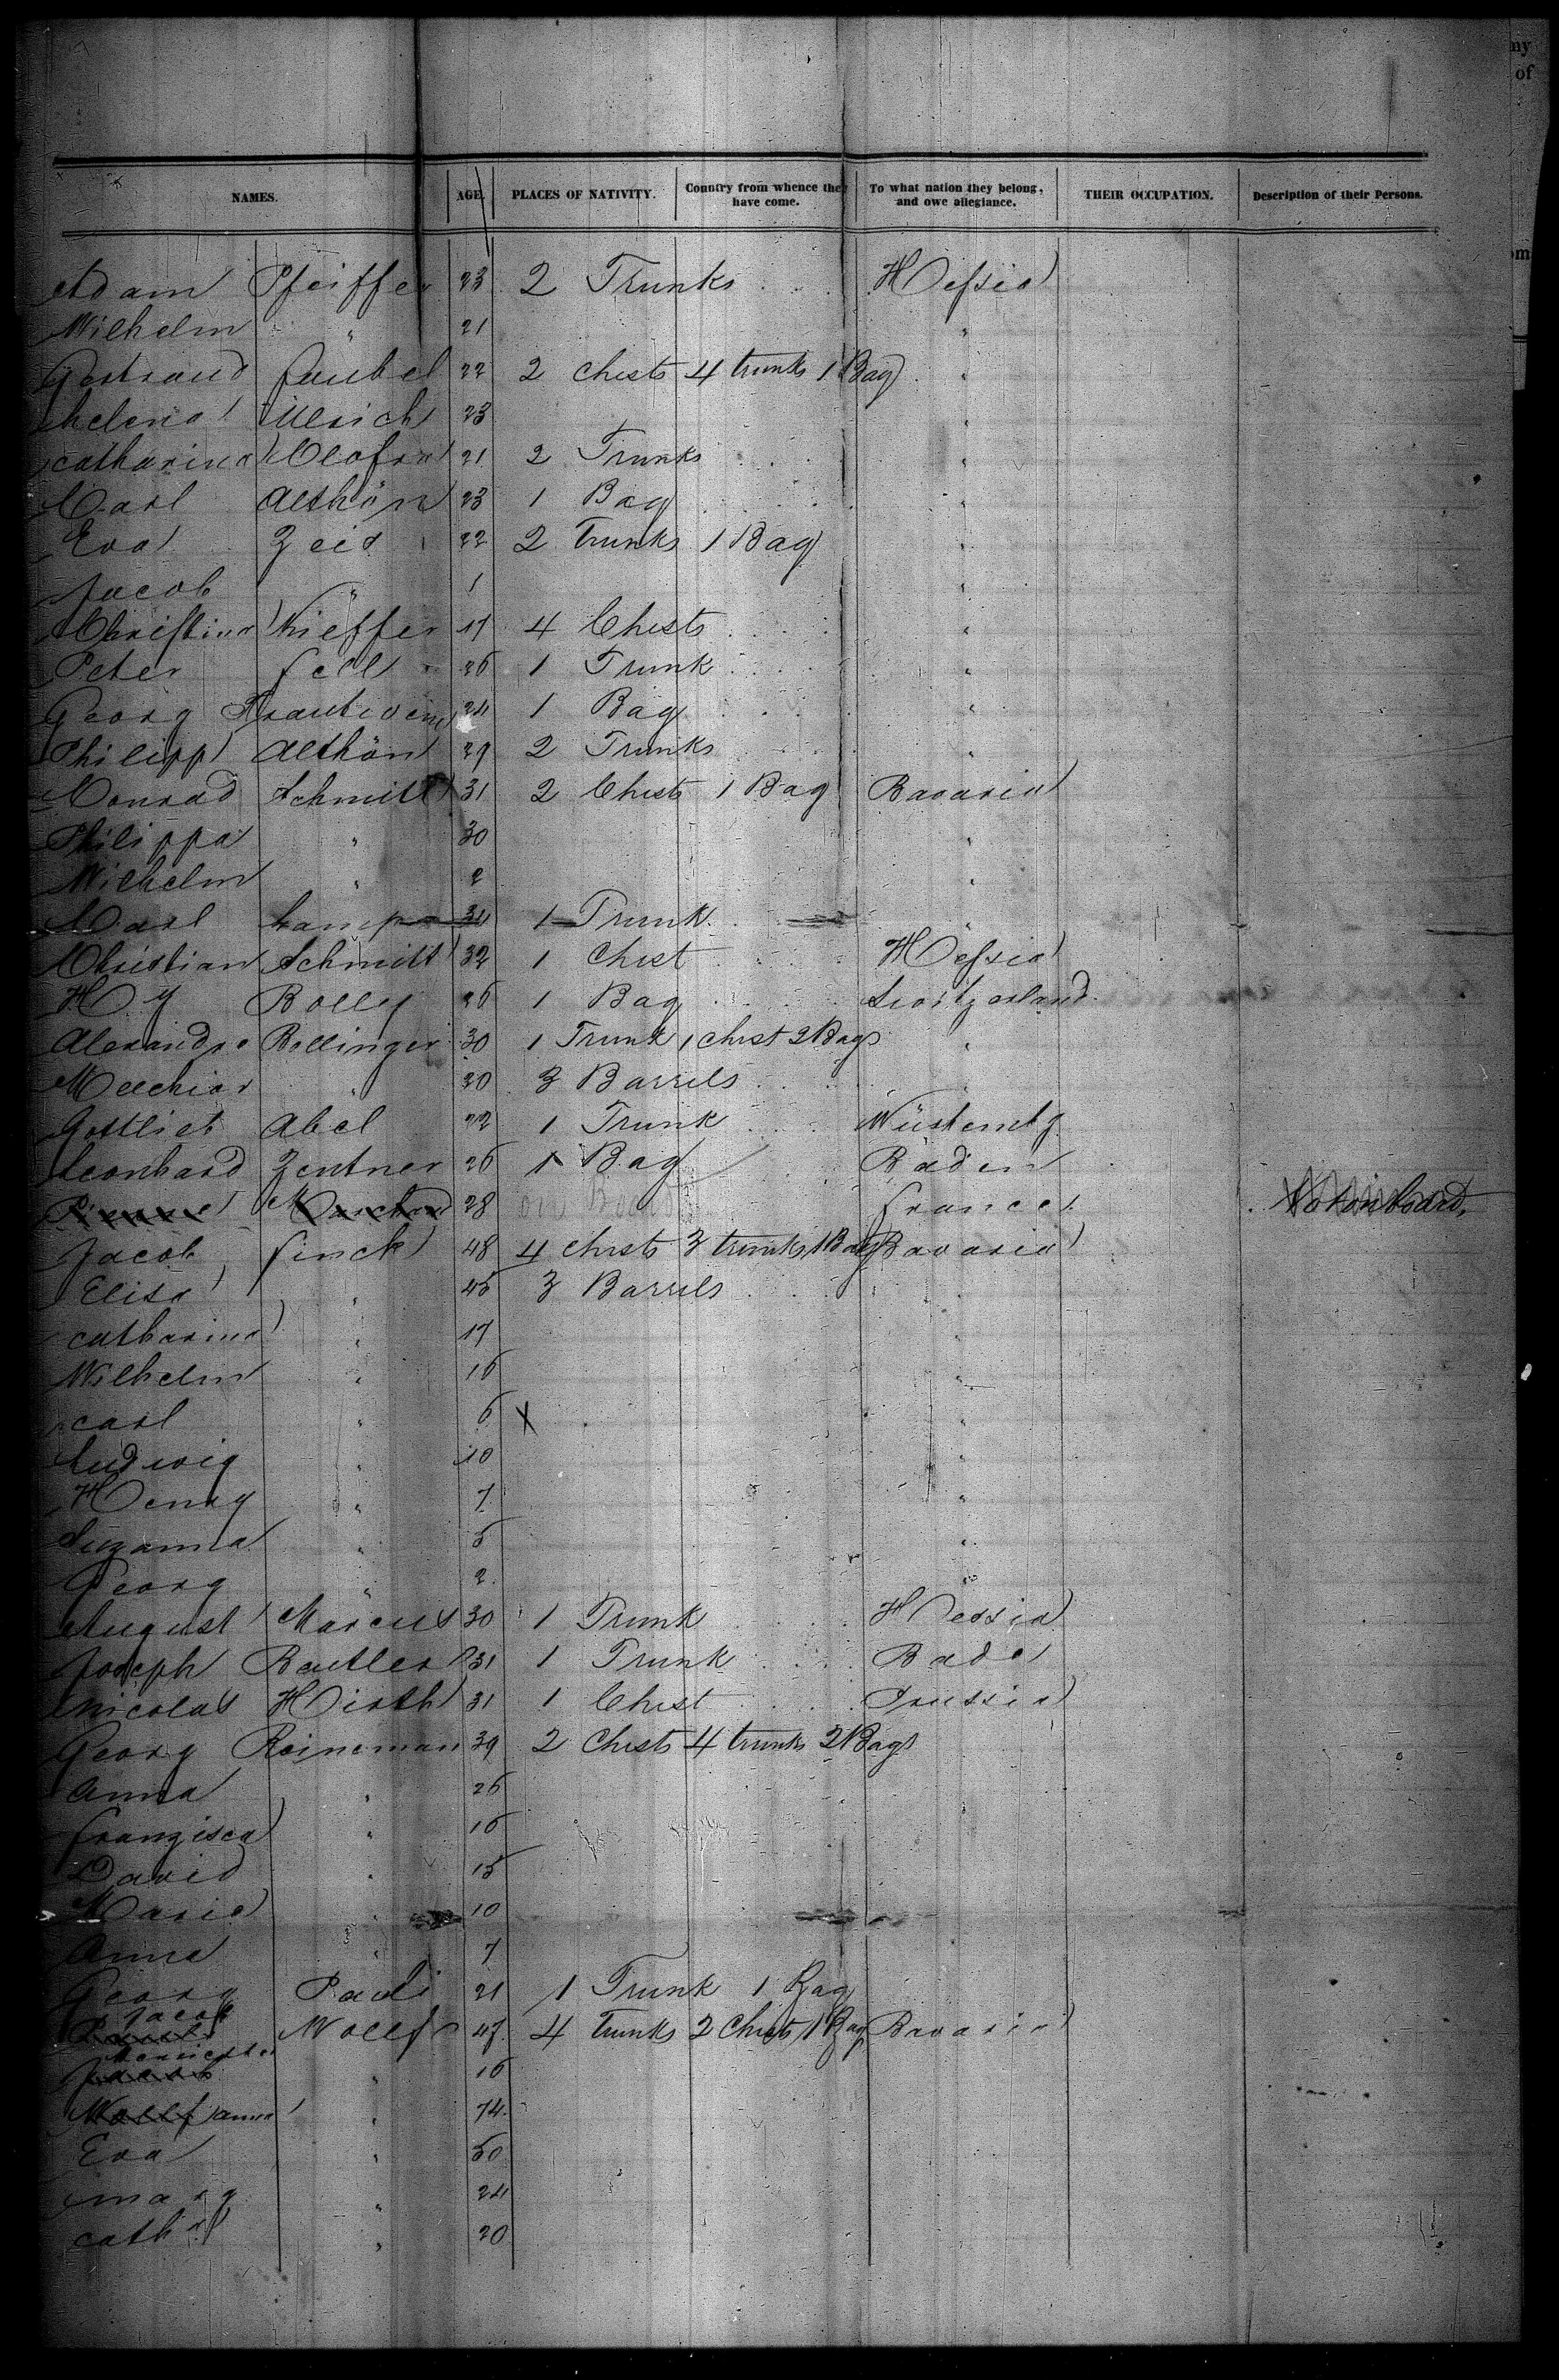 ny
of
om
NAMES. AGE. PLACES OF NATIVITY. Country from whence they have come. To what nation they belong, and owe allegiance. THEIR OCCUPATION. Description of their Persons.
Adam Pfeiffer 23 2 Trunks Heſsia
Wilhelm " 21 "
Gertraud faubel 22 2 chests 4 trunks 1 Bag "
helena Ullrich 23 "
catharina 21 2 Trunks "
Carl Althön 23 1 Bag "
Eva Zeis 22 2 trunks 1 Bag "
Jacob " 1 "
Chriſtina Kieffer 17 4 Chests "
Peter fell 26 1 Trunk "
Georg 24 1 Bag "
Philipp Althön 29 2 Trunks "
Conrad Schmitt 31 2 Chests 1 Bag Bavaria
Philippa " 30 "
Wilhelm " 2 "
Carl Lamp 34 1 Trunk "
Christian Schmitt 32 1 Chest Heſsia
Hy Bolly 26 1 Bag Switzerland
Alexandre Bollinger 30 1 Trunk 1 chest 2 Bags "
Melchior " 20 3 Barrels "
Gottlieb Abel 22 1 Trunk Würtembg
Leonhard Zentner 26 1 Bag Baden
28 on Board france Not on board.
Jacob finck 48 4 chests 3 trunks 1 Bag Bavaria
Elisa " 45 3 Barrels "
catharina " 17 "
Wilhelm " 16 "
carl " 6 X "
Ludwig " 10 "
Henry " 7 "
Suzanna " 5 "
Georg " 2 "
August Marcus 30 1 Trunk Hessia
Joseph Bautler 31 1 Trunk Bade
Nicolas Hirth 31 1 Chest Prussia
Georg Reineman 39 2 Chests 4 trunks 2 Bags
Anna " 26
franzisca " 16
David " 15
Maria " 10
Anna " 7
Georg Pauli 21 1 Trunk 1 Bag
Jacob Wollf 47 4 trunks 2 Chests 1 Bag Bavaria
" 16
Wollf anna " 74
Eva " 50
marg " 24
catha " 20